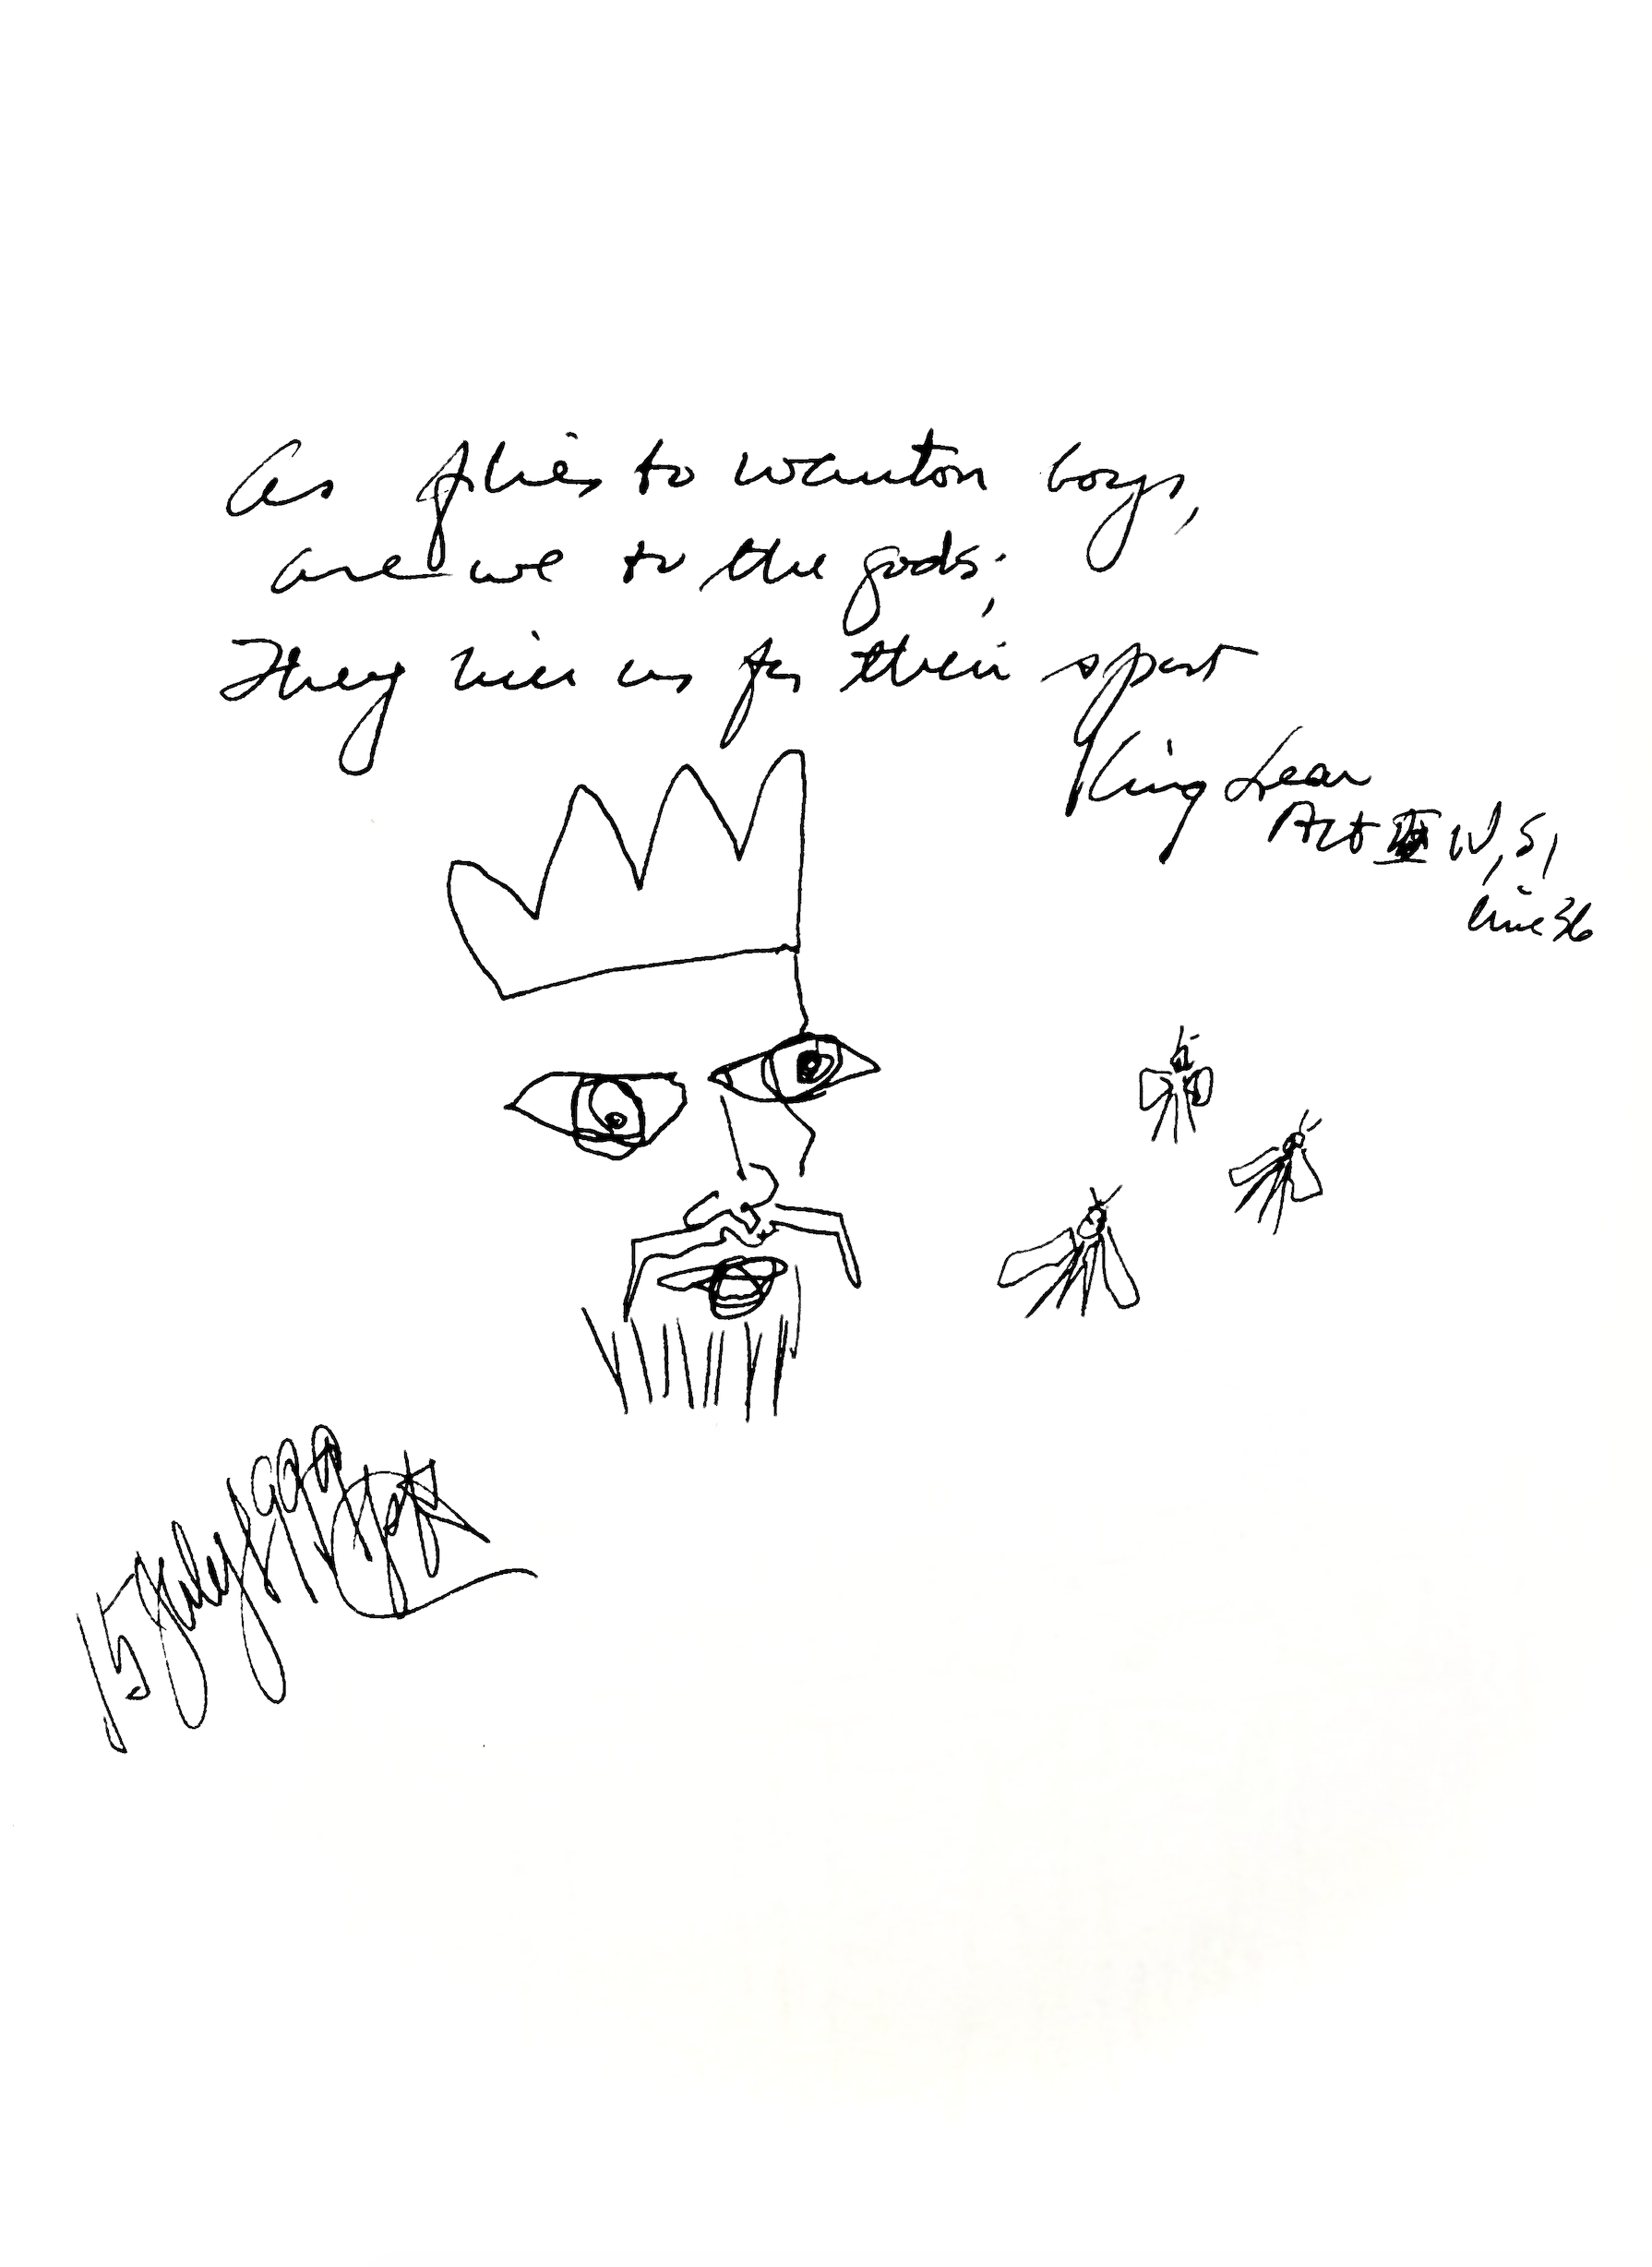 As flies to wanton boys,
are we to the gods;
They kill us for their sport
King Lear
Act IV, S1
line 36
15 July 1999